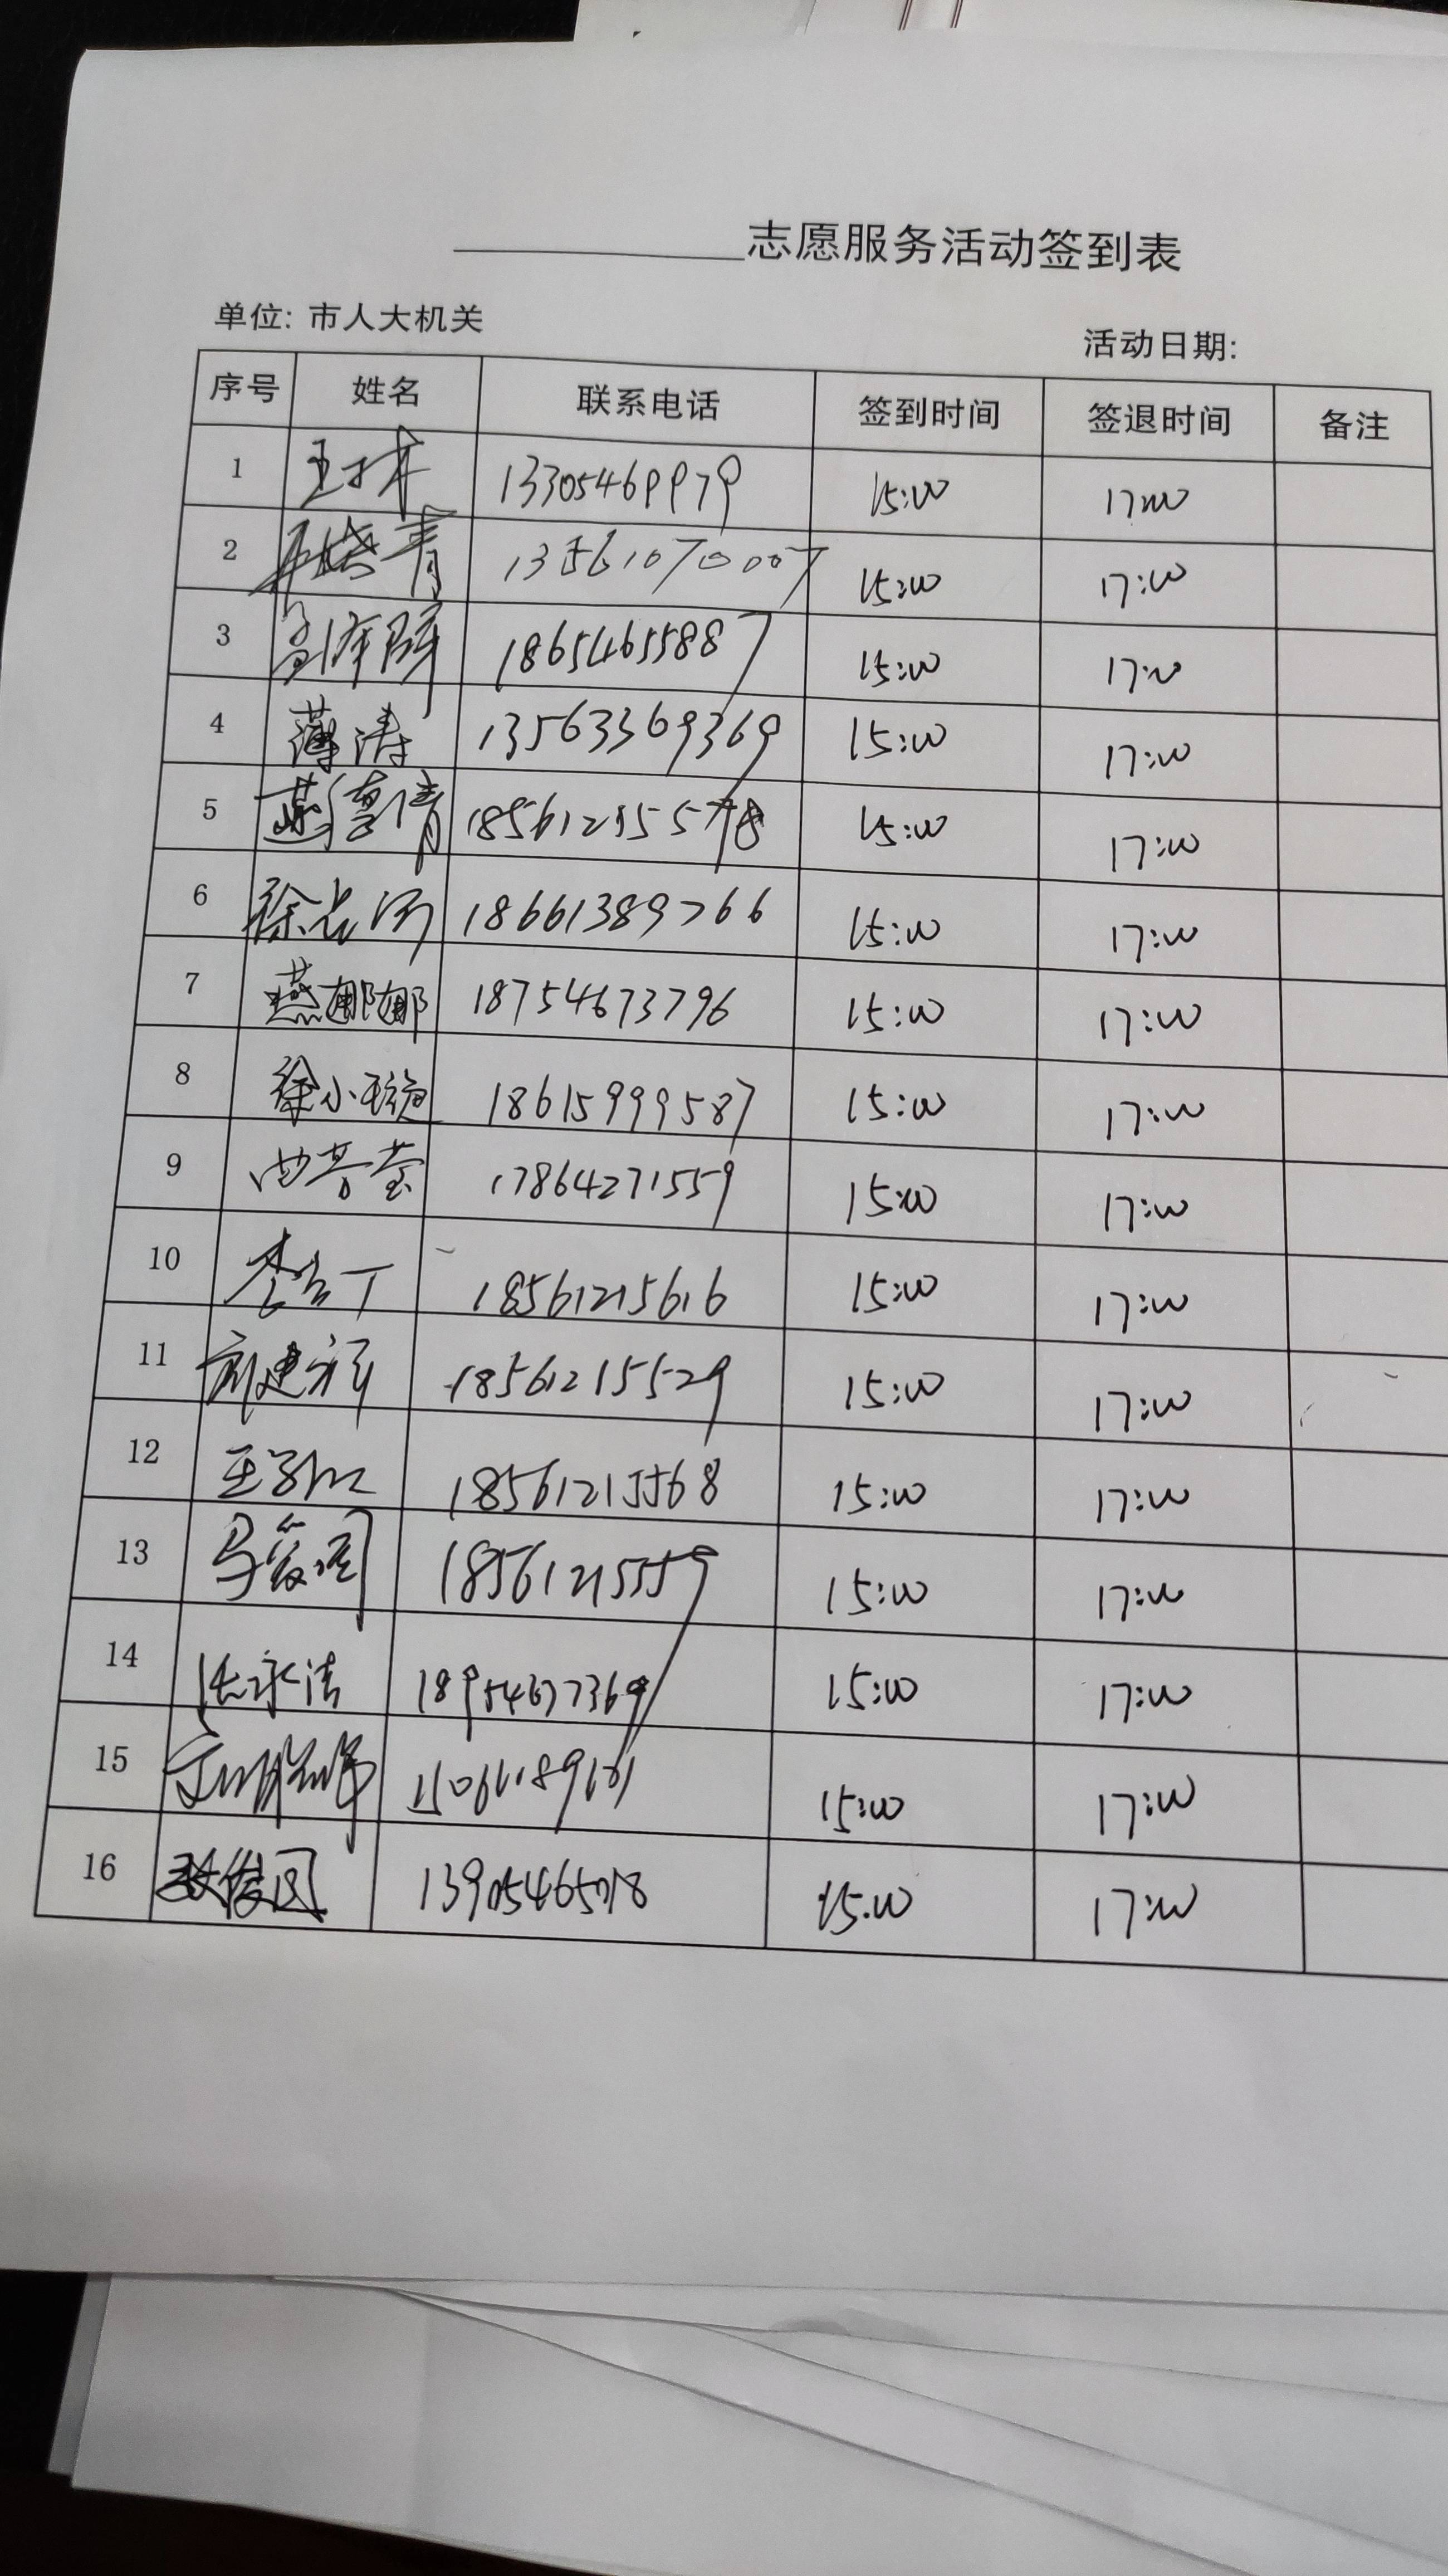 志愿服务活动签到表
单位: 市人大机关
活动日期:
序号 姓名 联系电话 签到时间 签退时间 备注
1 13305469979 15:00 17:00
2 青 13561070007 15:00 17:00
3 18654655887 15:00 17:00
4 薄涛 13563369369 15:00 17:00
5 燕 倩 18561215578 15:00 17:00
6 徐 18661389766 15:00 17:00
7 燕娜娜 18754673796 15:00 17:00
8 徐小璇 18615999587 15:00 17:00
9 曲芳莹 17864271559 15:00 17:00
10 李 18561215616 15:00 17:00
11 建 18561215529 15:00 17:00
12 王 18561215568 15:00 17:00
13 马 18561215559 15:00 17:00
14 张永洁 18954677369 15:00 17:00
15 15:00 17:00
16 15:00 17:00